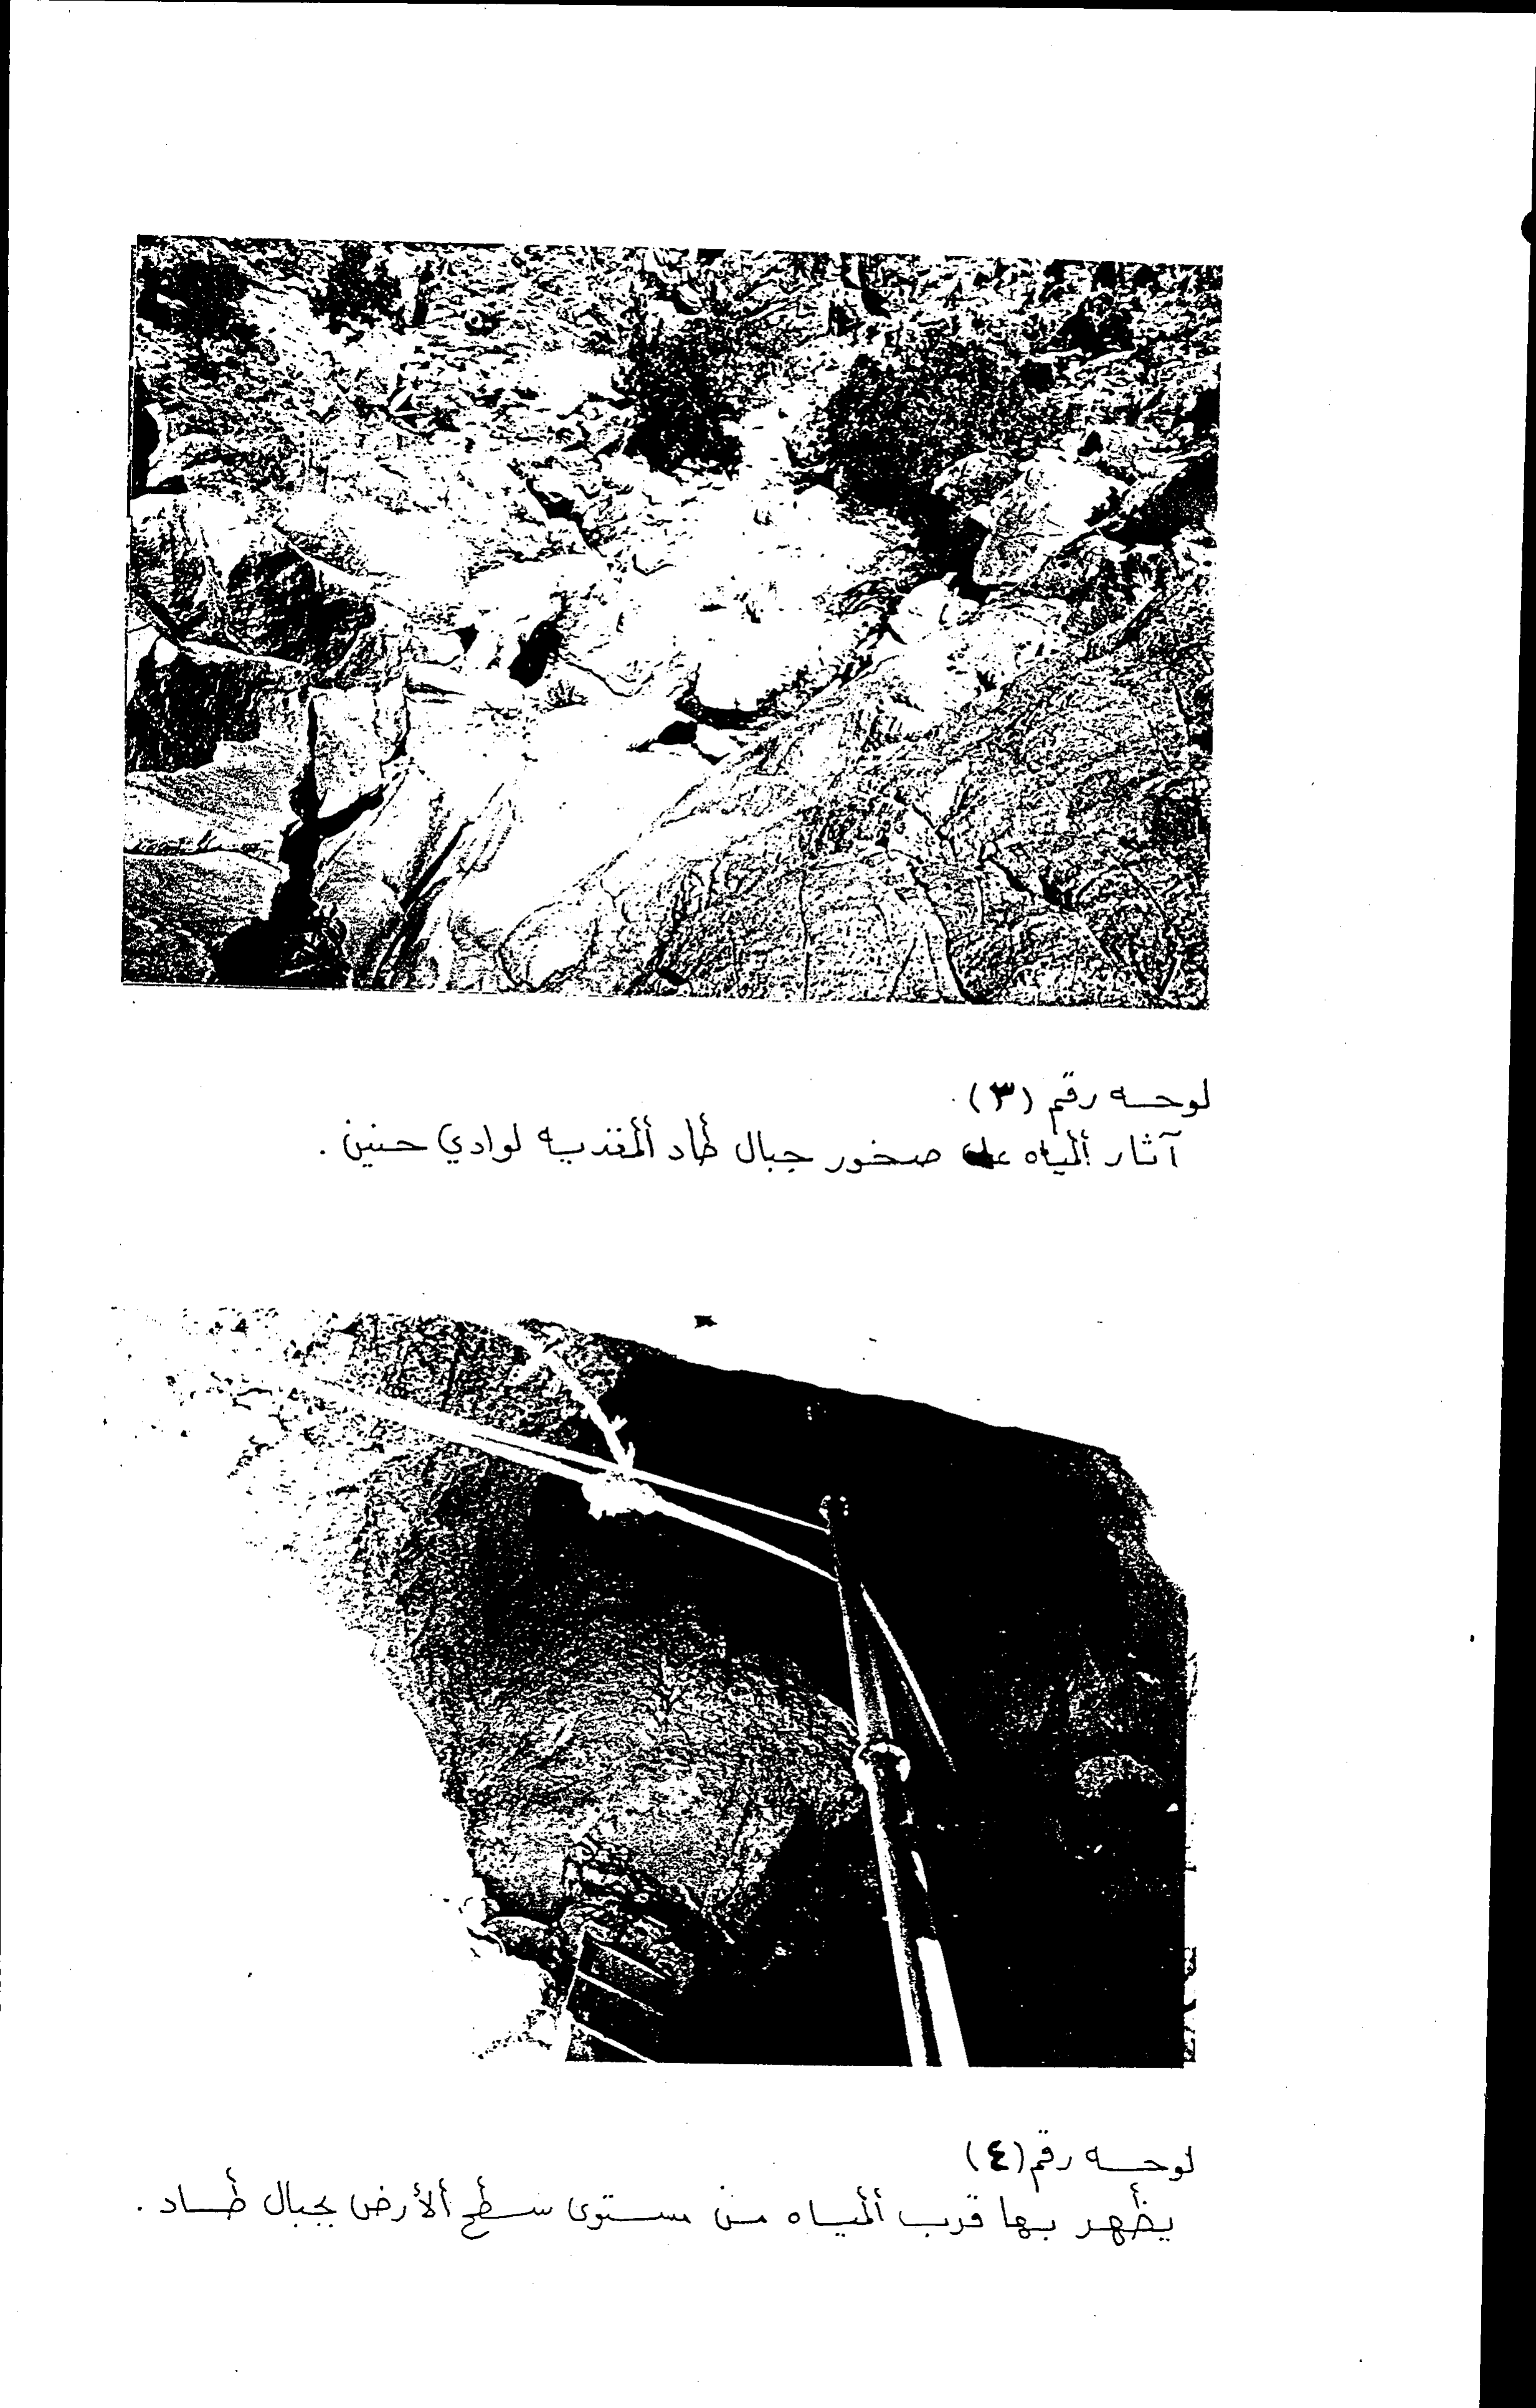 لوحه رقم (٣)
آثار المياه على صخور جبال طاد المغذيه لوادي حنين .
لوحه رقم (٤)
يظهر بها قرب المياه من مستوى سطح الأرض بجبال طاد .